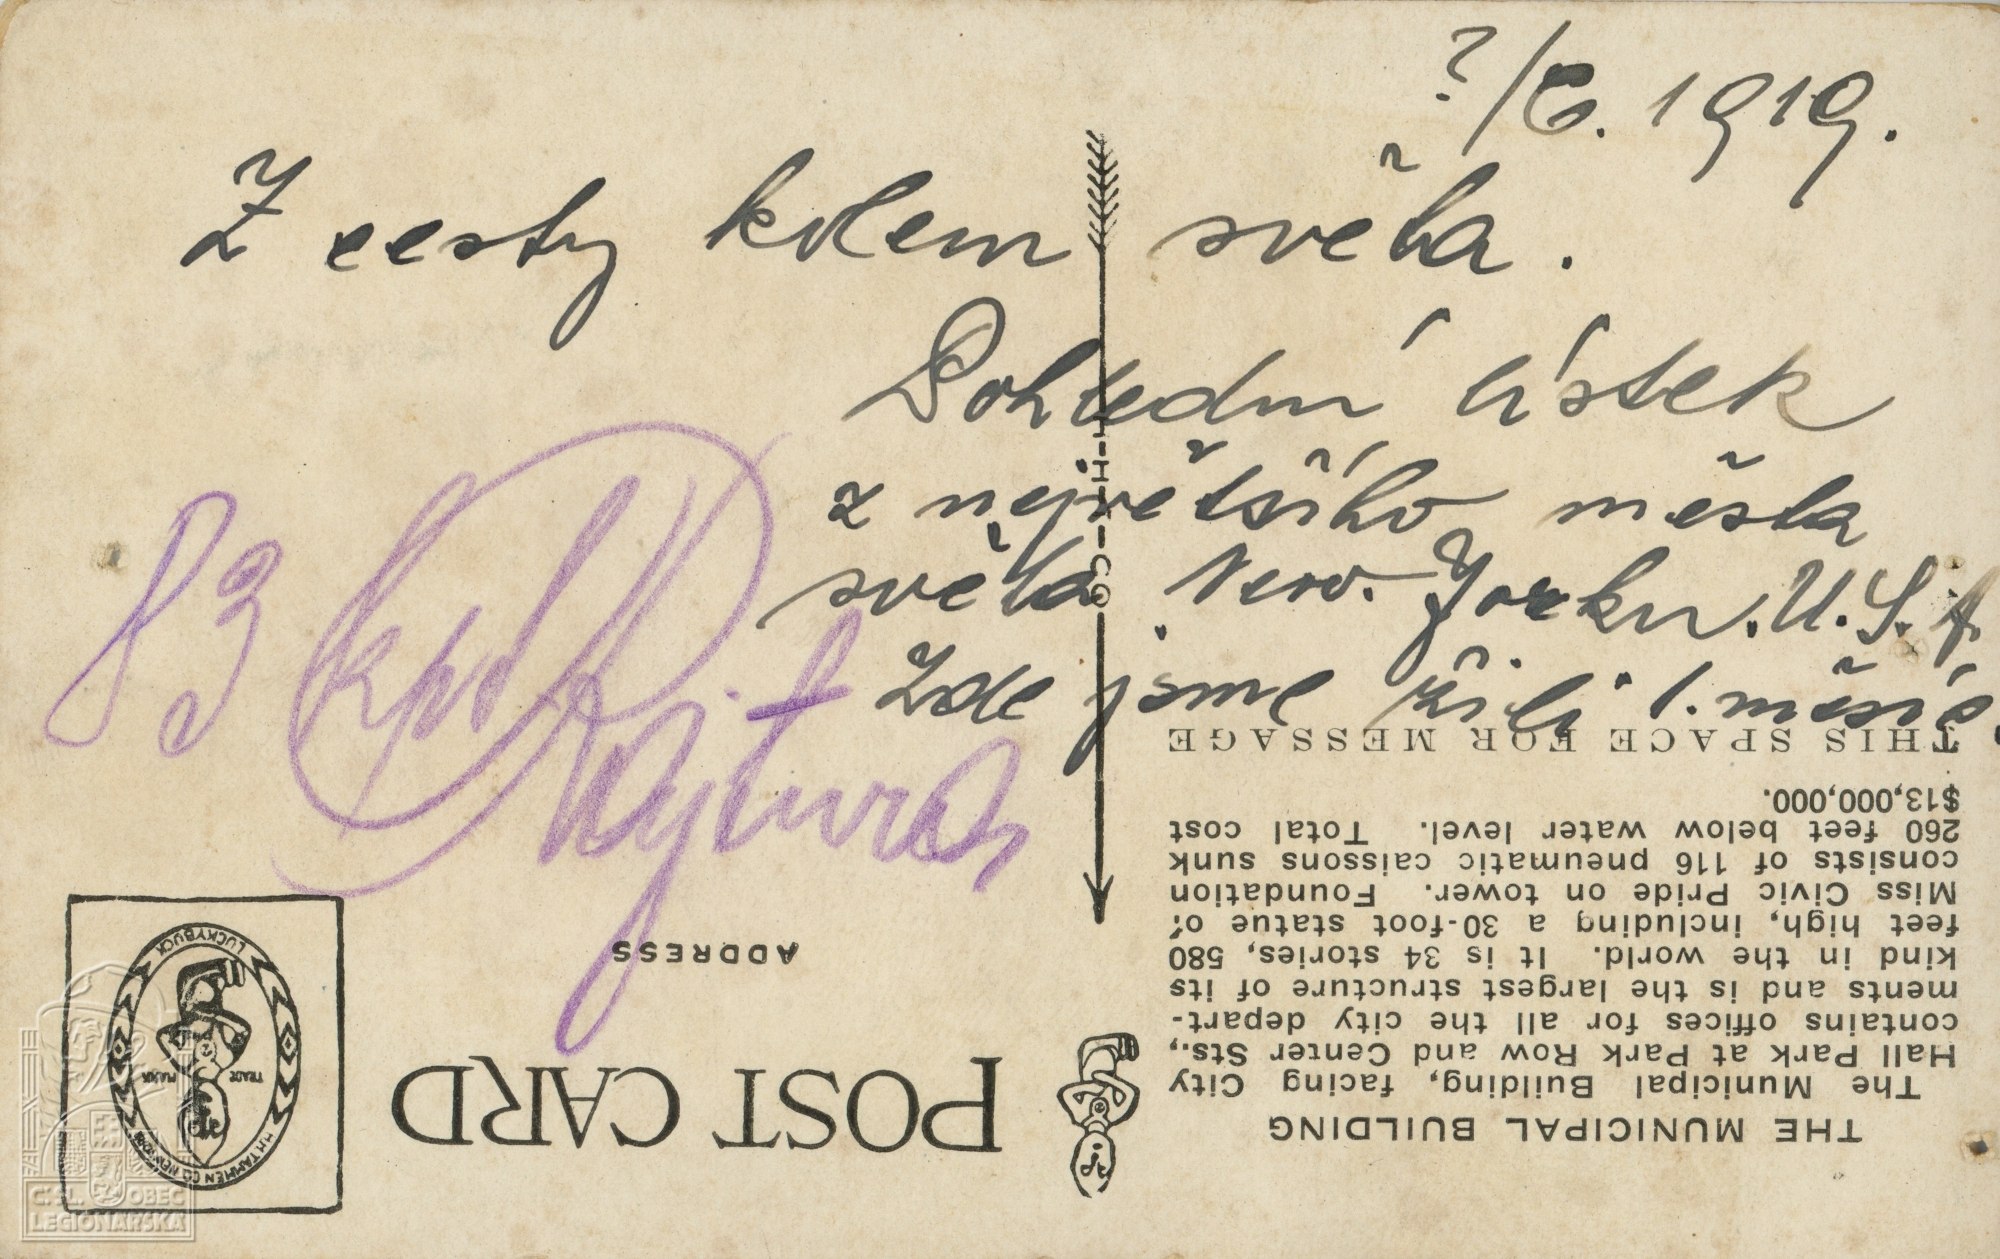 ?/6. 1919.
Z cesty kolem světa.
Pohlední lístek
z největšího města
světa New. Yorku. U.S.A
Zde jsme žili 1. měsíc.
83
THE MUNICIPAL BUILDING
The Municipal Building, facing City
Hall Park at Park Row and Center Sts.,
contains offices for all the city depart-
ments and is the largest structure of its
kind in the world. It is 34 stories, 580
feet high, including a 30-foot statue of
Miss Civic Pride on tower. Foundation
consists of 116 pneumatic caissons sunk
260 feet below water level. Total cost
$13,000,000.
THIS SPACE FOR MESSAGE
POST CARD
ADDRESS
H.H.T. CO.
H.H. TAMMEN CO. NEW YORK
LUCKYBUCK
TRADE MARK
Č.SL. OBEC
LEGIONÁŘSKÁ